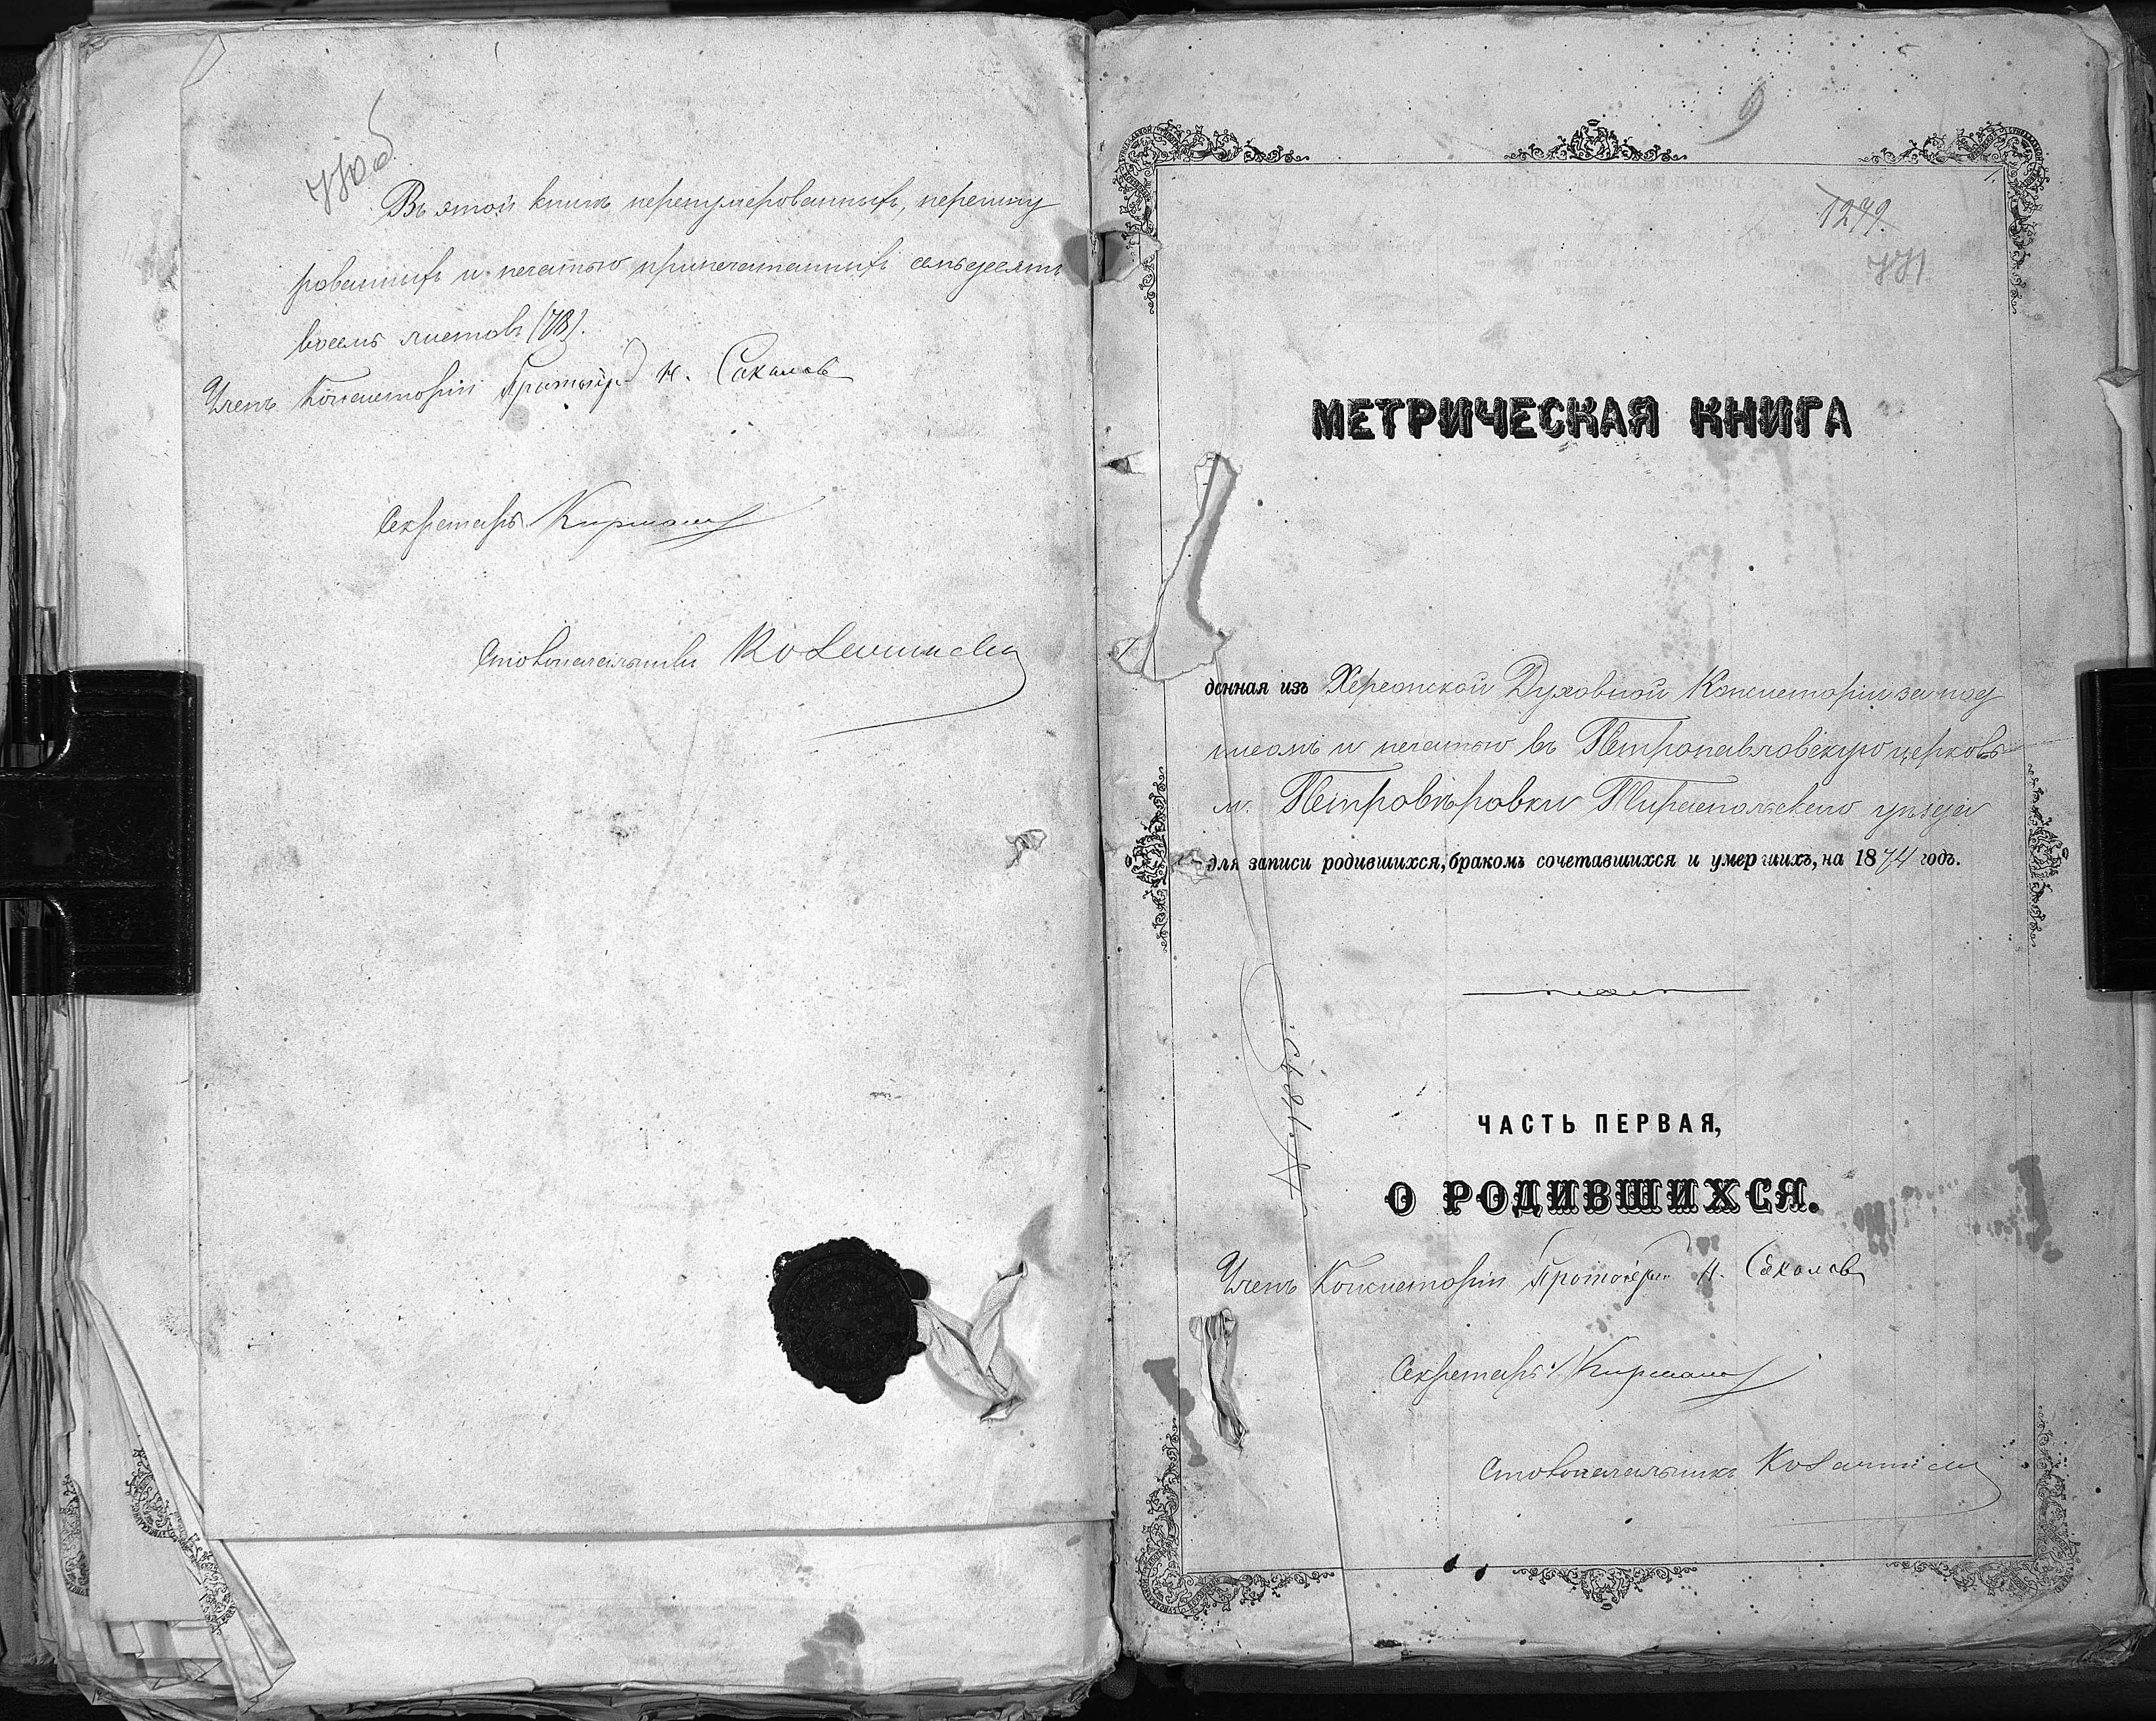 770об
Въ этой книгѣ перенумерованныхъ, перешну
рованныхъ и печатью припечатанныхъ семьдесятъ
восемь листовъ (78).
Членъ Консисторіи Протоіерей Н. Соколовъ
Секретарь
Столоначальникъ
9
1.
1279.
771
МЕТРИЧЕСКАЯ КНИГА
данная изъ Херсонской Духовной Консисторіи за под
писомъ и печатью въ Петропавловскую церковь
м. Петровѣровки Тираспольскаго уѣзда
для записи родившихся, бракомъ сочетавшихся и умершихъ, на 1874 годъ.
ЧАСТЬ ПЕРВАЯ,
О РОДИВШИХСЯ.
Членъ Консисторіи Протоіерей Н. Соколовъ
Секретарь
Столоначальникъ